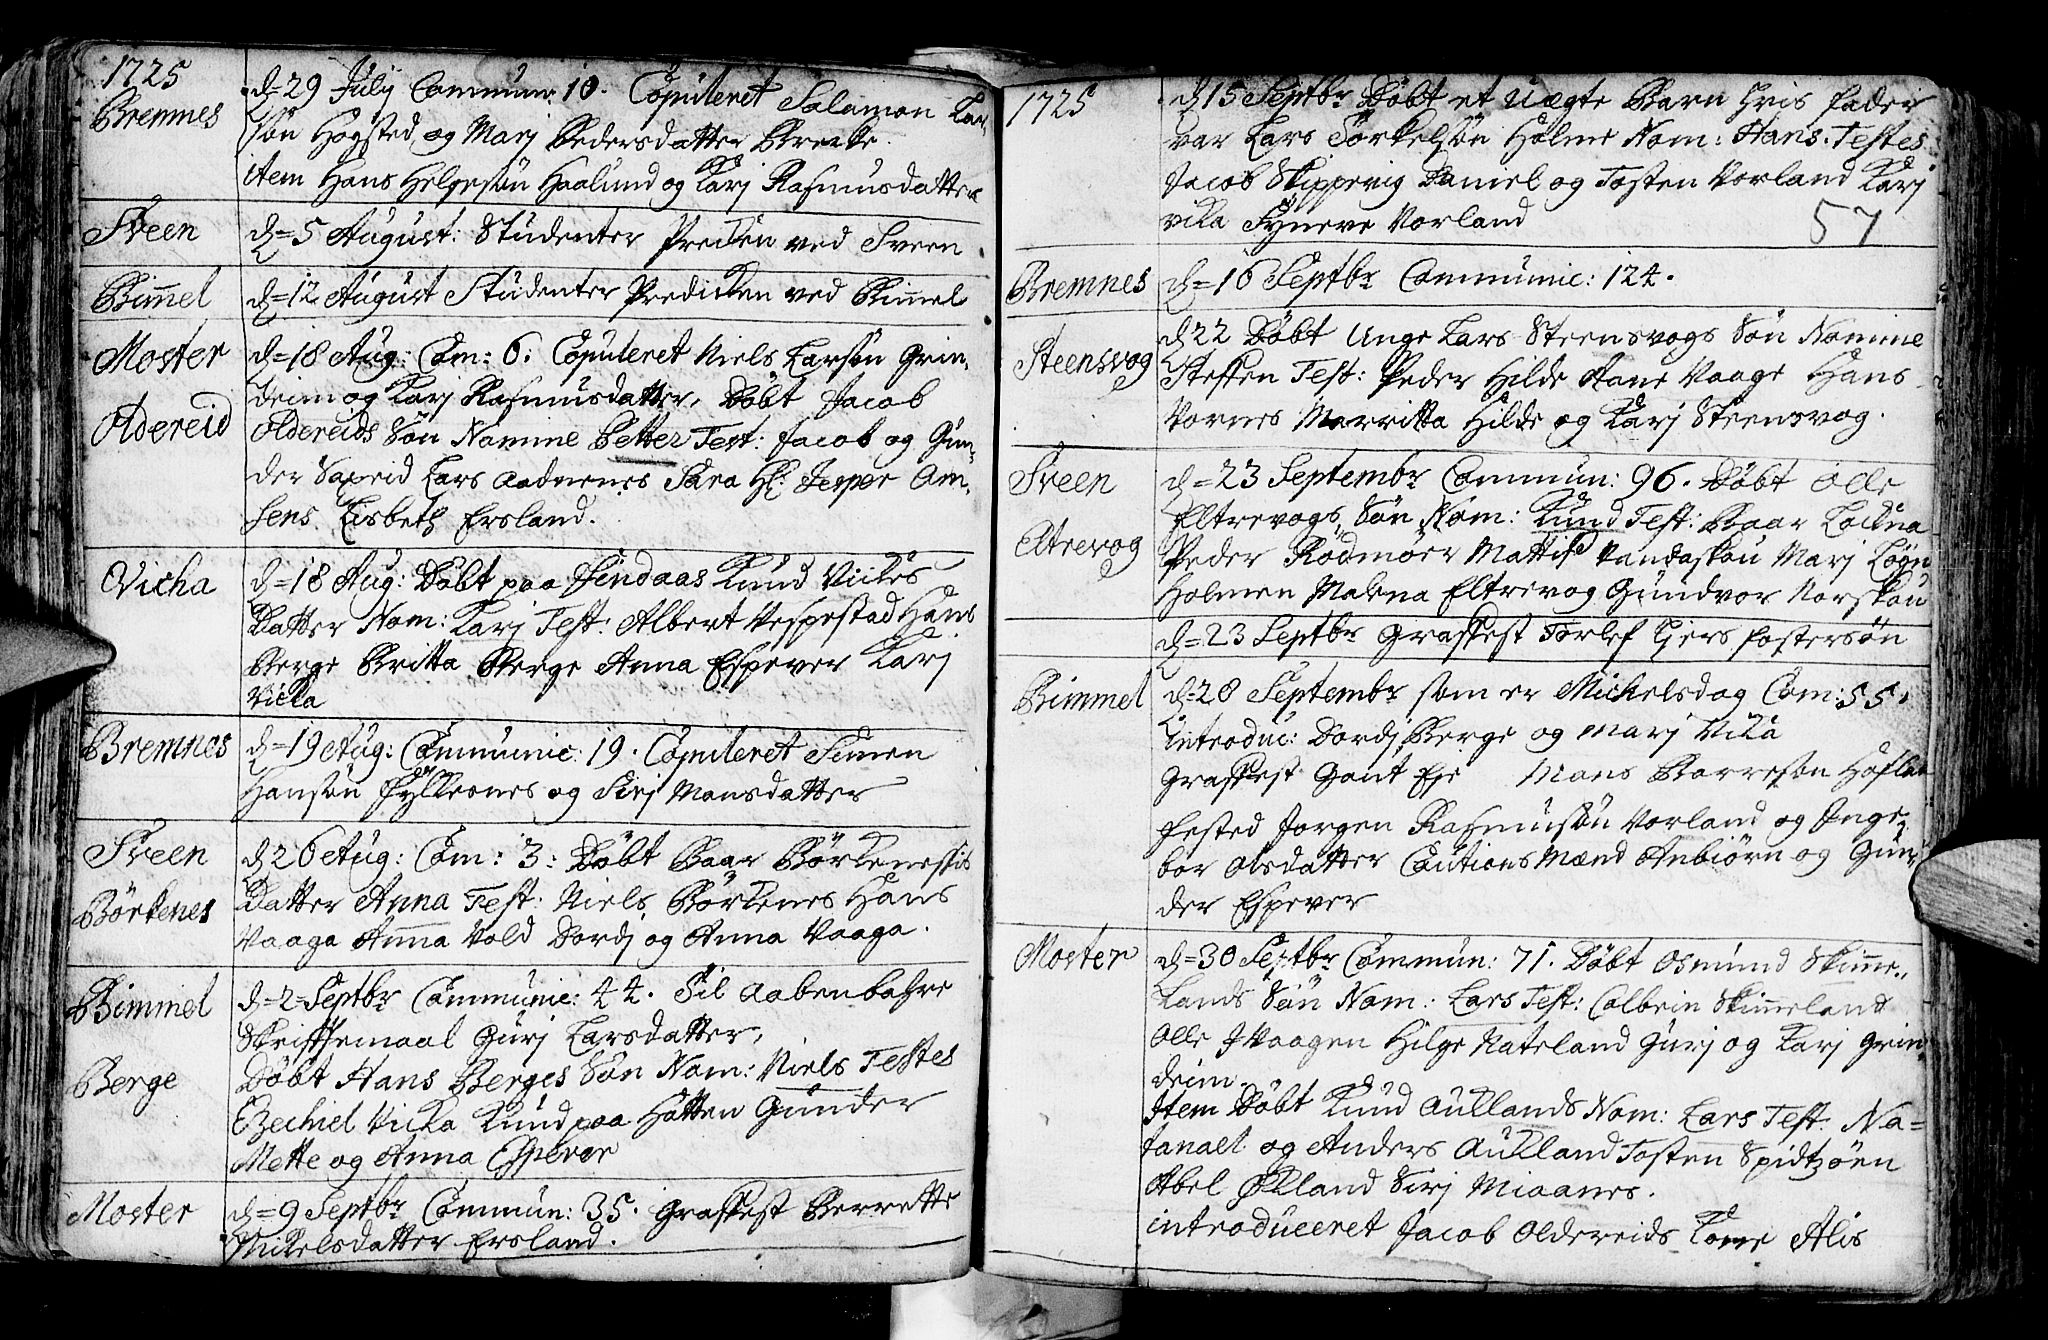 1725
Bremnes
d= 29 July Commun: 10. Copuleret Salamon Lar-
søn Hogsted og Marj Pedersdatter Brecke.
item Hans Helgesøn Haalund og Karj Rasmusdatter
Sveen
d= 5 August: Studenter Precken ved Sveen
Bimmel
d= 12 August Studenter Predicken ved Bimmel
Moster
Oldereid
d= 18 Aug: Com: 6. Copuleret Niels Larsøn Grin-
deim og Karj Rasmusdatter. Døbt Jacob
Oldereids Søn Namne Petter Test: Jacob og Gun-
der Lars Aadnenes Sara Hr: Jesper Am-
sens Lisbeth Ersland.
Vicha
d= 18 Aug: Døbt paa Findaas Knud Vickes
Datter Nom: Karj Test: Albert Vespestad Hans
Berge Britta Berge Anna Espever Karj
Vicka
Bremnes
d= 19 Aug: Communic: 19. Copuleret Simen
Hansøn Fylkesnes og Sirj Monsdatter
Sveen
Børkenes
d 26 Aug: Com: 3: Døbt Baar Børkenessis
Datter Anna Test: Niels Børkenes Hans
Vaaga Anna Vold Dordj og Anna Vaaga.
Bimmel
Berge
d= 2= Septbr Communic: 44. Til Aabenbahre
Skrifftemaal Gurj Larsdatter.
Døbt Hans Berges Søn Nom: Niels Testes
Ezechiel Vicka Knud paa Hatten Gunder
Mette og Anna Espever
Moster
d= 9 Septbr Commun: 35. Graffest Berrette
Mickelsdatter Ersland.
1725
d 15 Septbr Døbt et Uægte Barn hvis Fader
var Lars Torkelsøn Holme Nom: Hans. Testes
Jacob Skippevig Daniel og Tosten Vorland Karj
vika Syneve Vorland
57
Bremnes
d= 16 Septbr Communic: 124.
Steensvog
d 22 Døbt Unge Lars Steensvogs Søn Namne
Steffen Test: Peder Hilde Aane Vaage Hans
Vornes Marritta Hilde og Karj Steensvog.
Sveen
Eltrevog
d= 23 Septembr Commun: 96. Døbt Olle
Eltrevogs Søn Nom: Knud Test: Baar Lockna
Peder Rødmøer Mattis Vandaskou Marj Løgn
Holmen Malena Eltrevog Gundvor Norskou
d= 23 Septbr Graffest Torlef Tiers fostersøn
Bimmel
d= 28 Septembr som er Michelsdag Com: 55.
introduc: Dordj Berge og Marj Vika
Graffest Gant Eje Mons Baaresøn Hofland
Fested Jorgen Rasmusøn Vorland og Inge-
bor Olsdatter Cautions Mænd Anbiørn og Gun-
der Espever
Moster
d= 30 Septbr Commun: 71. Døbt Osmund Skimme-
lands Søn Nom: Lars Test: Colbein Skimmeland
Olle J Waagen Hilge Nateland Gurj og Karj Grin-
deim.
Item Døbt Knud Aucklands Nom: Lars Test: Na=
tanael og Anders Auckland Tosten Spidtzøen
Abel Økland Sirj Miaanes.
introduceret Jacob Oldereids Kone Alis